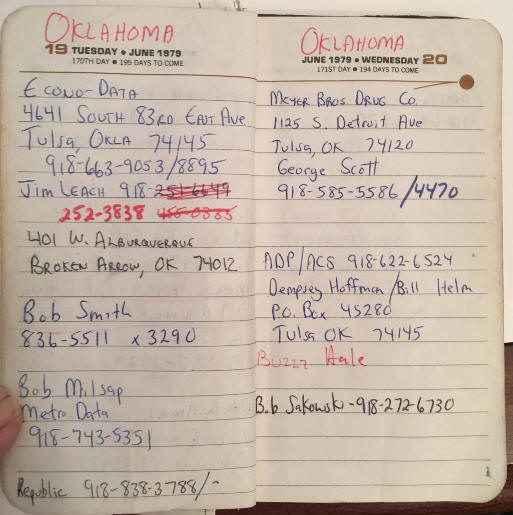 OKLAHOMA
19 TUESDAY • JUNE 1979
170TH DAY • 195 DAYS TO COME
ECONO-DATA
4641 SOUTH 83RD EAST AVE
Tulsa, OKLA 74145
918-663-9053/8895
JIM LEACH 918-251-6649
252-3838 455-0385
401 W. ALBURQUERQUE
BROKEN ARROW, OK 74012
Bob Smith
836-5511 x 3290
Bob Milsap
Metro Data
918-743-5351
Republic 918-838-3788/-
OKLAHOMA
JUNE 1979 • WEDNESDAY 20
171ST DAY • 194 DAYS TO COME
MEYER BROS. DRUG CO.
1125 S. Detroit Ave
Tulsa, OK 74120
George Scott
918-585-5586/4470
ADP/ACS 918-622-6524
Dempsey Hoffman/Bill Helm
P.O. Box 45280
Tulsa OK 74145
Buzzy Hale
Bob Sakowski-918-272-6730